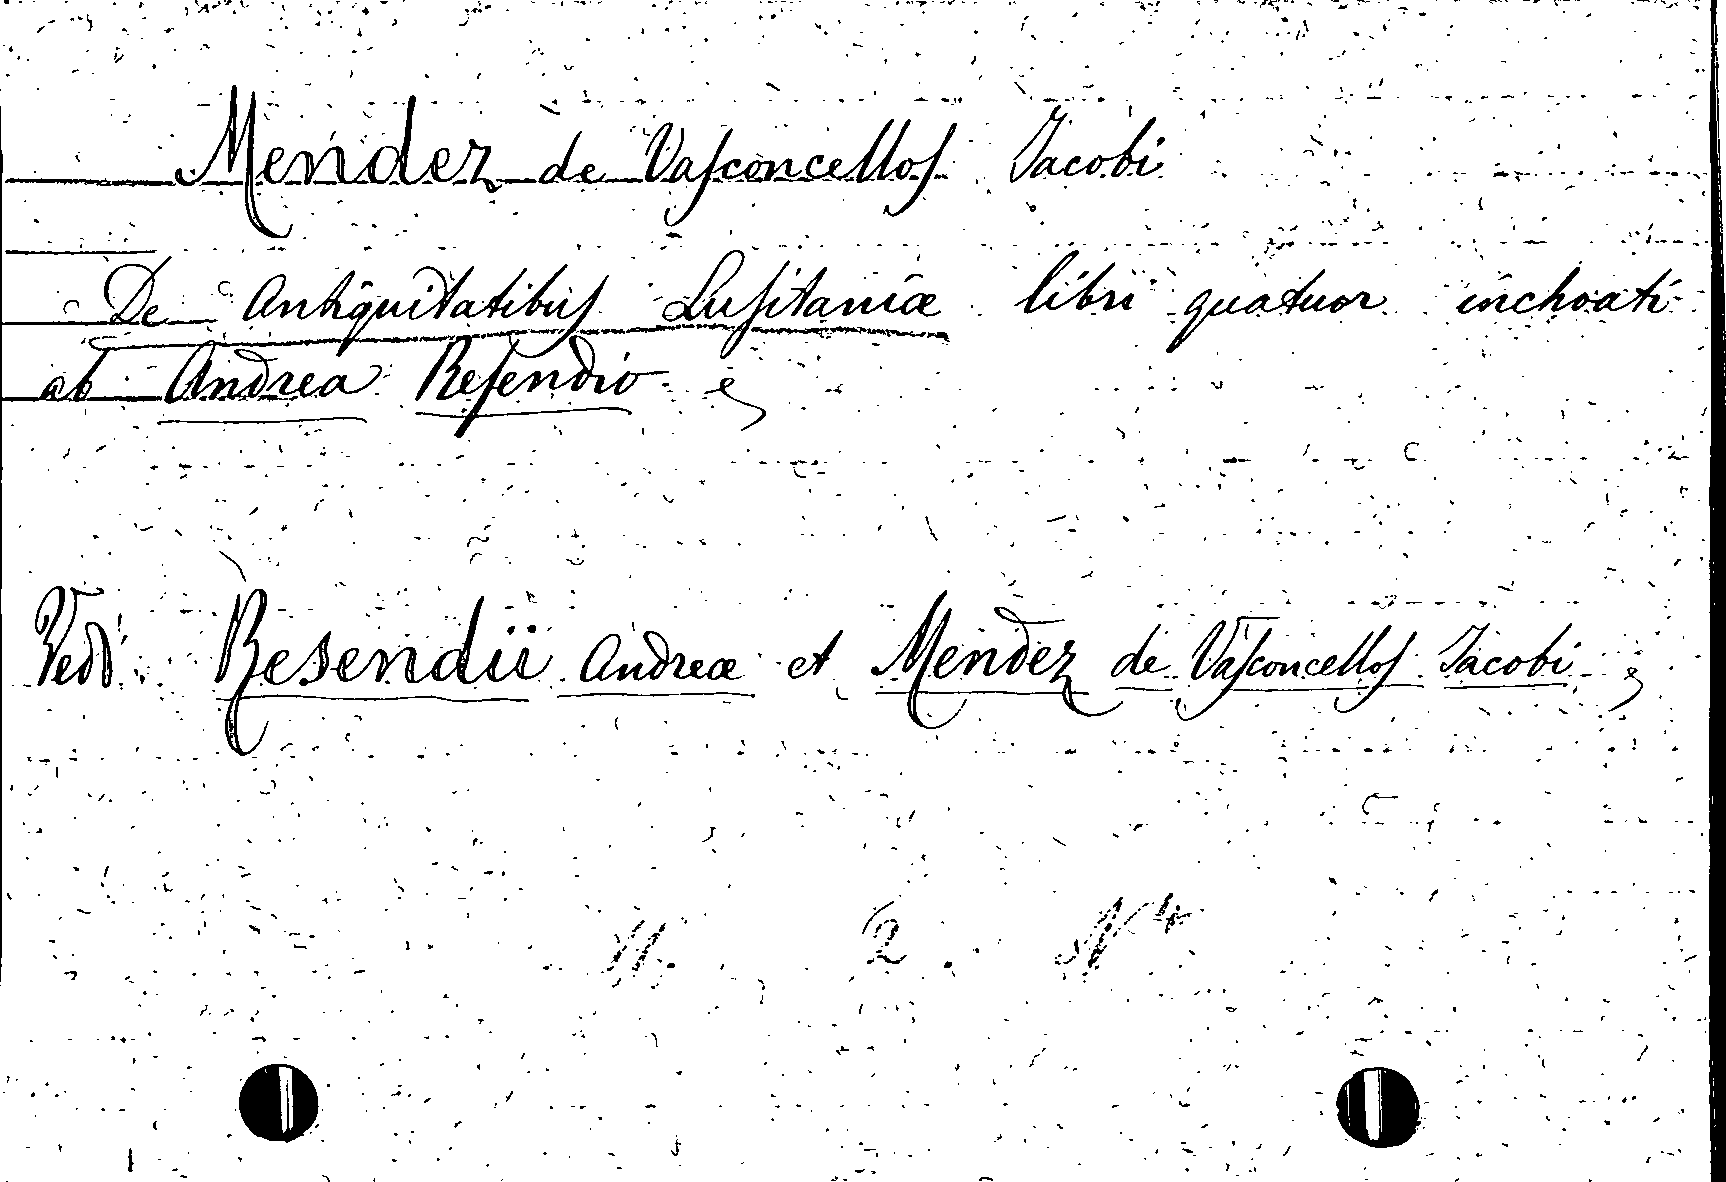 Mendez de Vaſconcelloſ Jacobi
De Antiquitatibuſ Luſitaniæ libri quatuor inchoati
ab Andrea Reſendio
Vedi Resendii Andreæ et Mendez de Vaſconcelloſ Jacobi
2 N 4